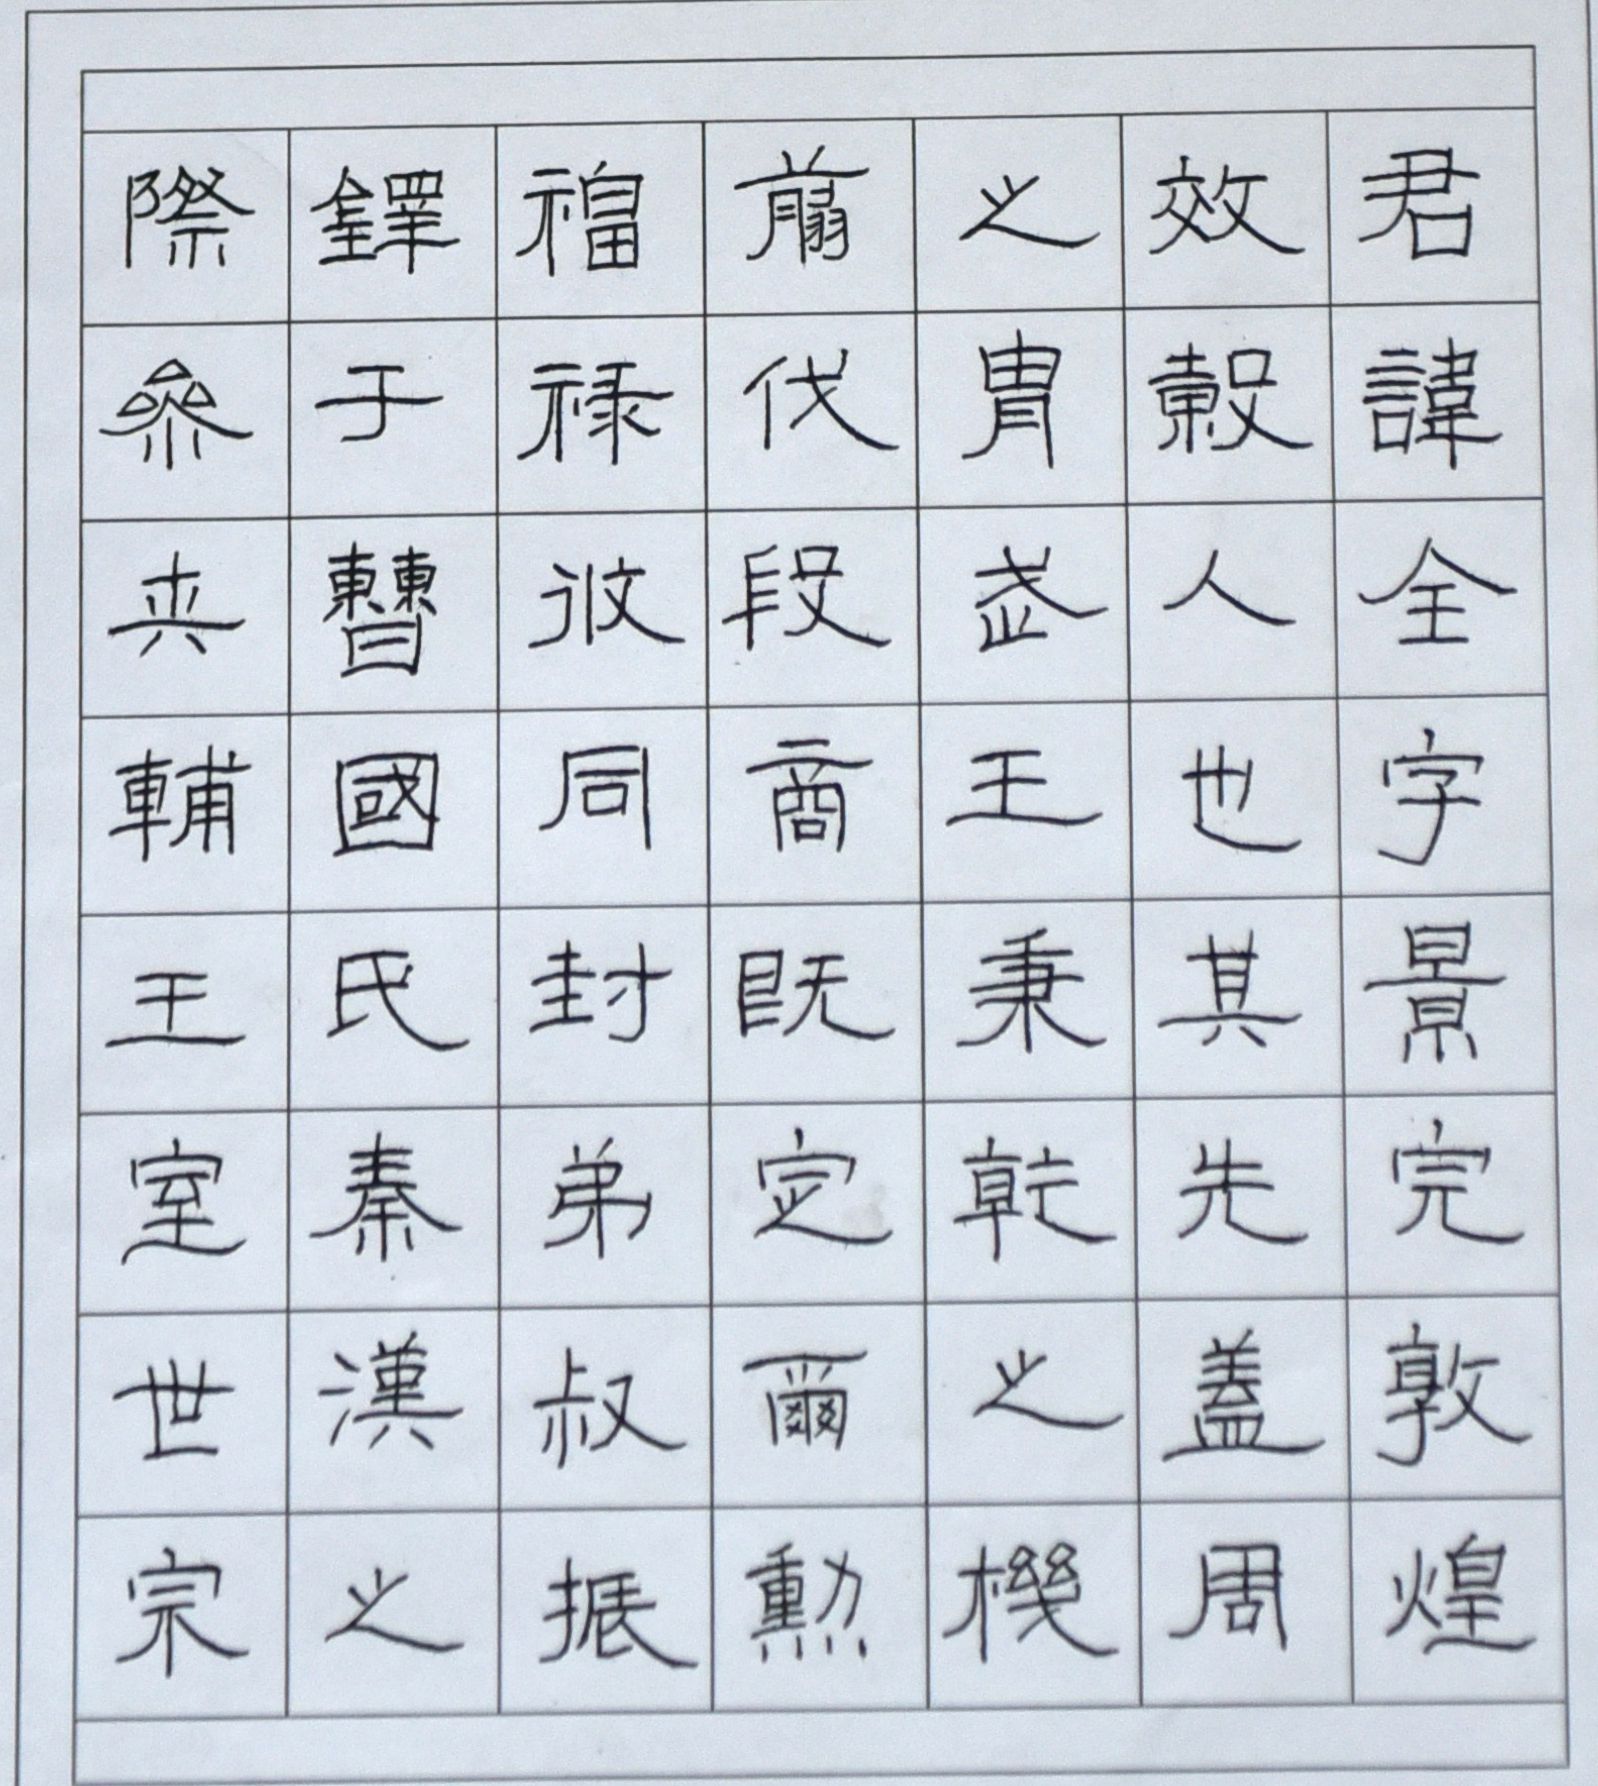 君諱全字景完敦煌
效穀人也其先蓋周
之胄武王秉乾之機
翦伐殷商既定爾勳
福祿攸同封弟叔振
鐸于曹國氏秦漢之
際曹參夾輔王室世宗